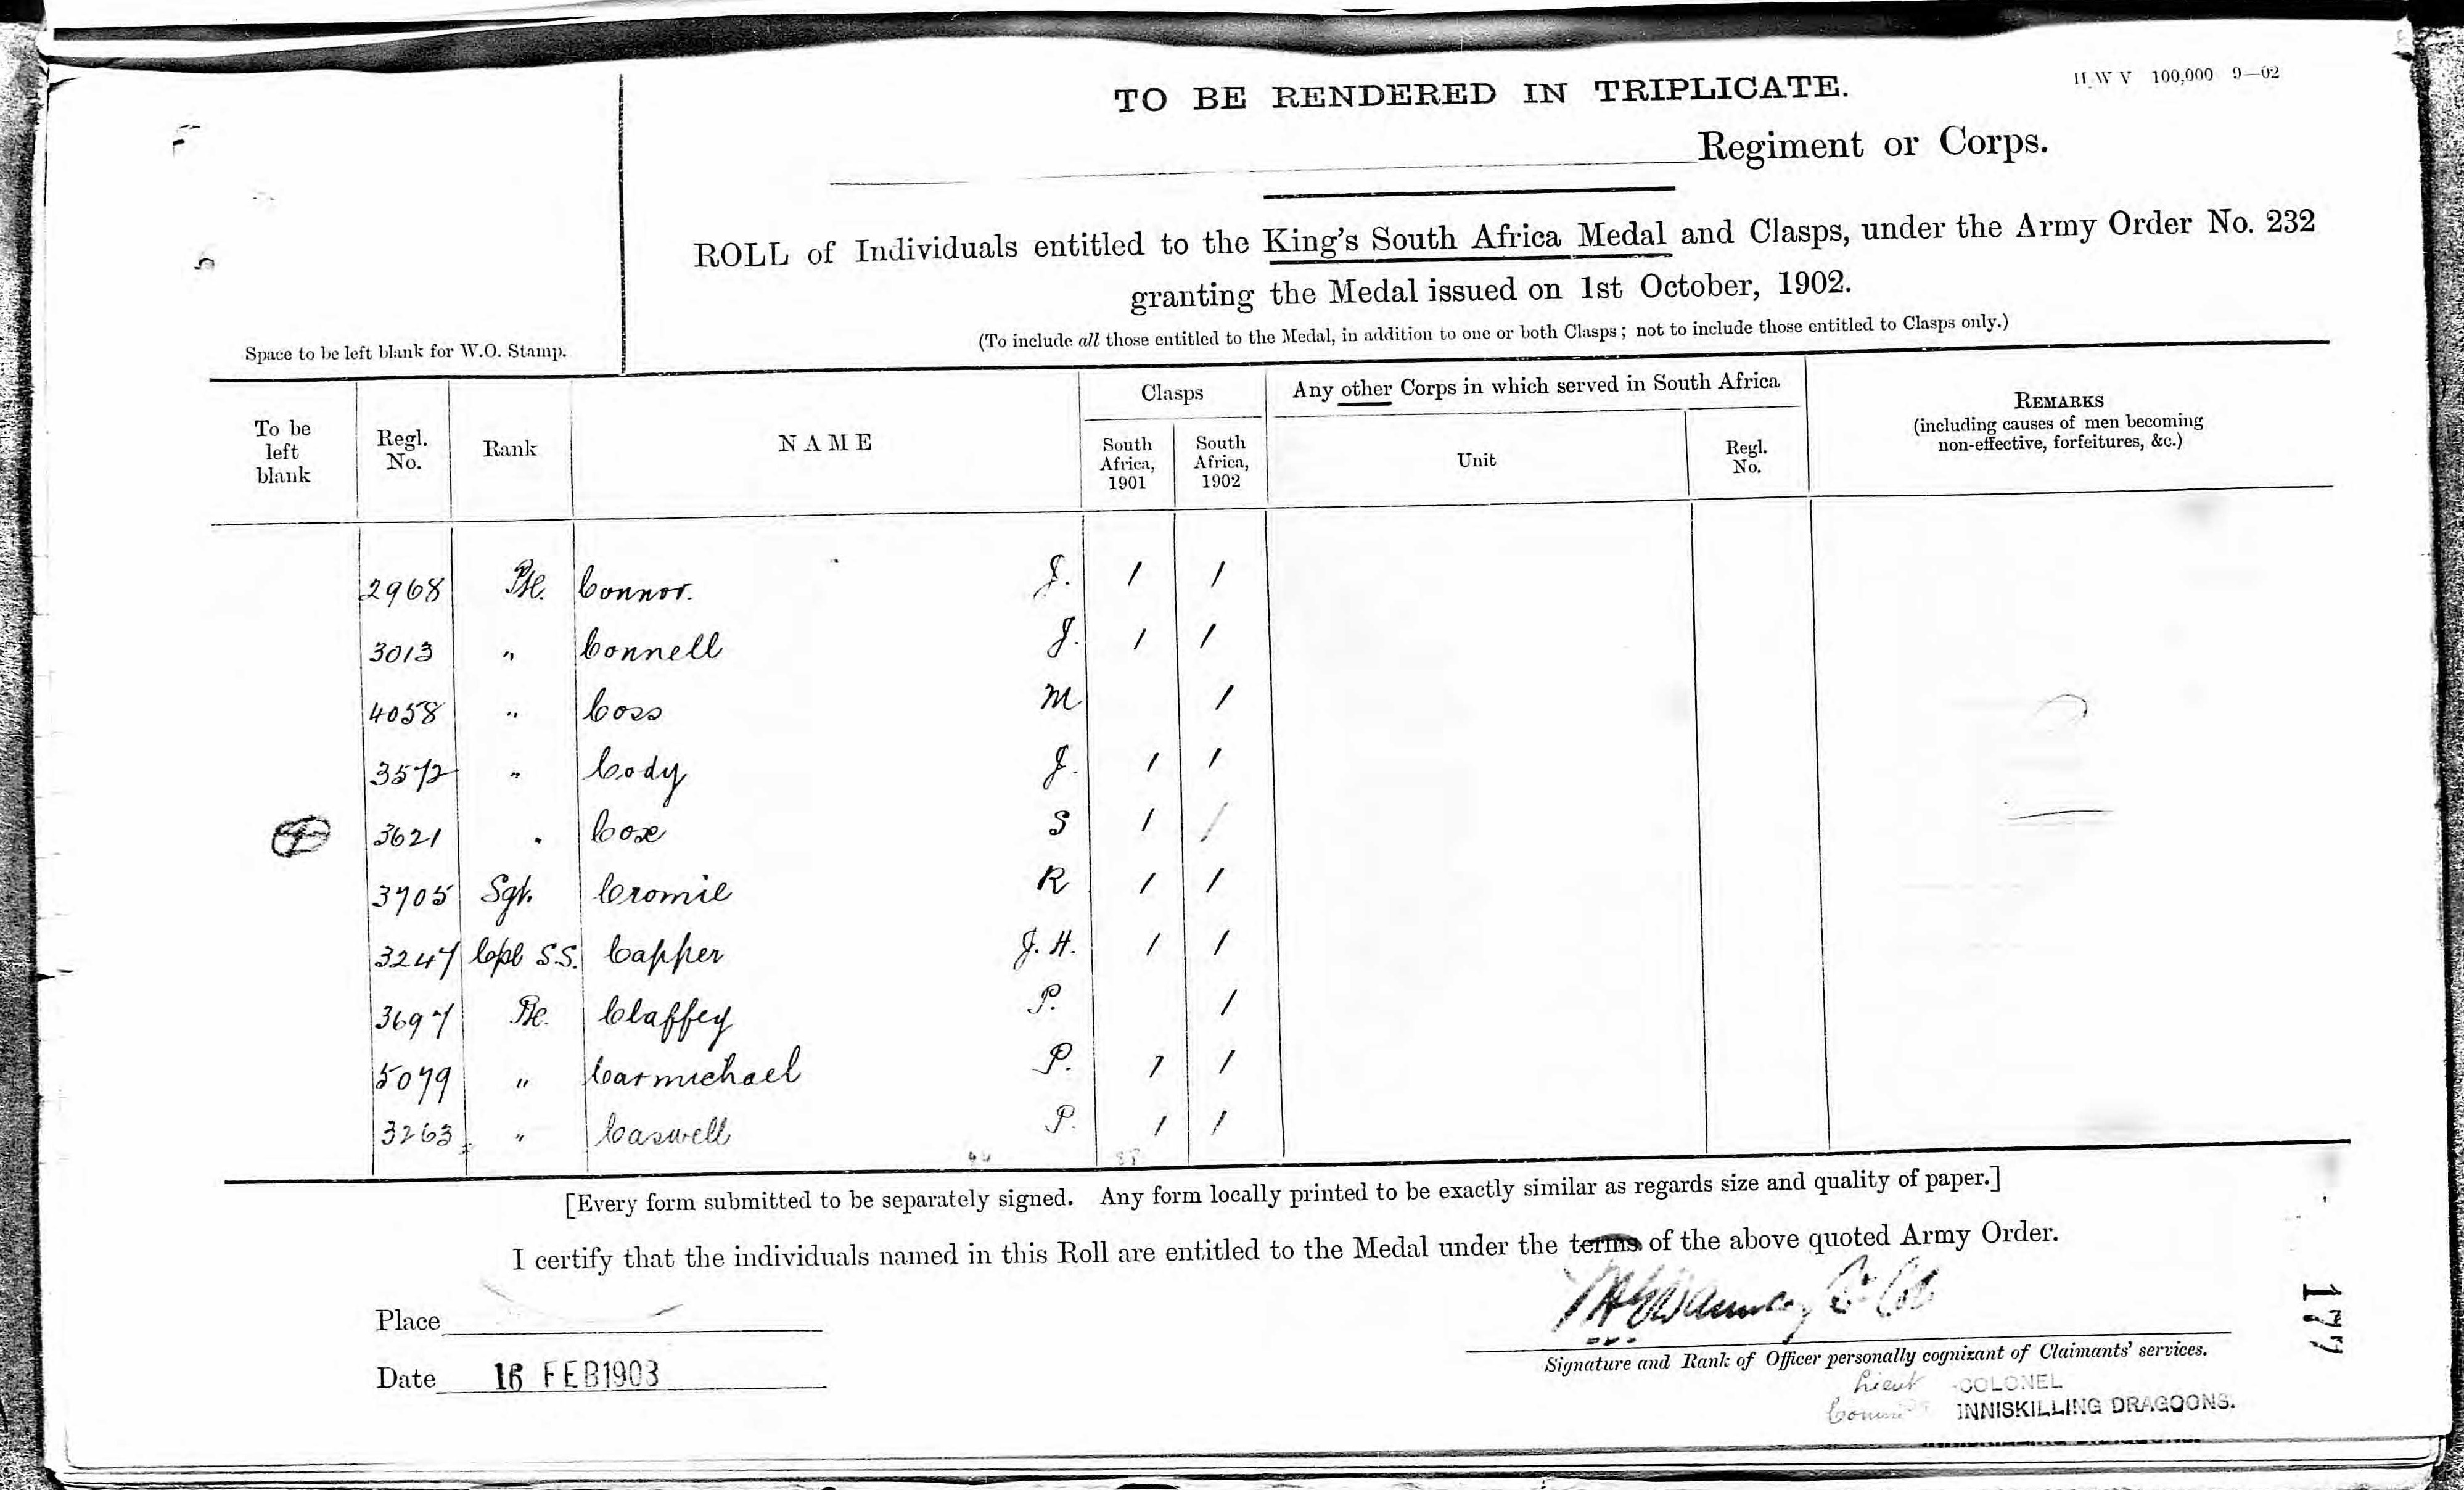 H W V 100,000 9—02
TO BE RENDERED IN TRIPLICATE.
Regiment or Corps.
ROLL of Individuals entitled to the King's South Africa Medal and Clasps, under the Army Order No. 232
granting the Medal issued on 1st October, 1902.
(To include all those entitled to the Medal, in addition to one or both Clasps; not to include those entitled to Clasps only.)
Space to be left blank for W.O. Stamp.
To be left blank Regl. No. Rank NAME Clasps South Africa, 1901 South Africa, 1902 Any other Corps in which served in South Africa Unit Regl. No. REMARKS (including causes of men becoming non-effective, forfeitures, &c.)
2968 Pte. Connor. J. / /
3013 " Connell J. / /
4058 " Coss M /
3572 " Cody J. / /
3621 " Coxe S / /
3705 Sgt. Cromie R / /
3247 Cpl S.S. Capper J. H. / /
3697 Pte. Claffey P. /
5079 " Carmichael P. 1 /
3263 " Caswell P. / /
[Every form submitted to be separately signed. Any form locally printed to be exactly similar as regards size and quality of paper.]
I certify that the individuals named in this Roll are entitled to the Medal under the terms of the above quoted Army Order.
Place
Date 16 FEB 1903
Lt Col
Signature and Rank of Officer personally cognizant of Claimants' services.
Lieut -COLONEL
INNISKILLING DRAGOONS.
177